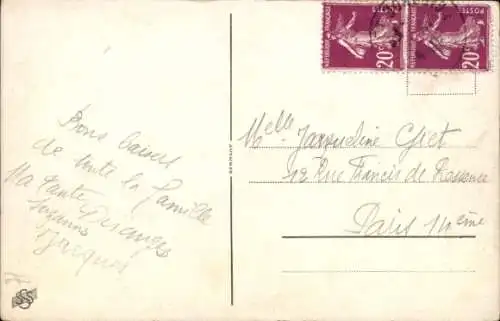 Bons baisers
de toute la famille
Ma tante Desanges
Suzanne
Jacques
RÉPUBLIQUE FRANÇAISE
POSTES
20c
RÉPUBLIQUE FRANÇAISE
POSTES
20c
Melle Jacqueline
12 Rue Francis de Pressensé
Paris 14ème